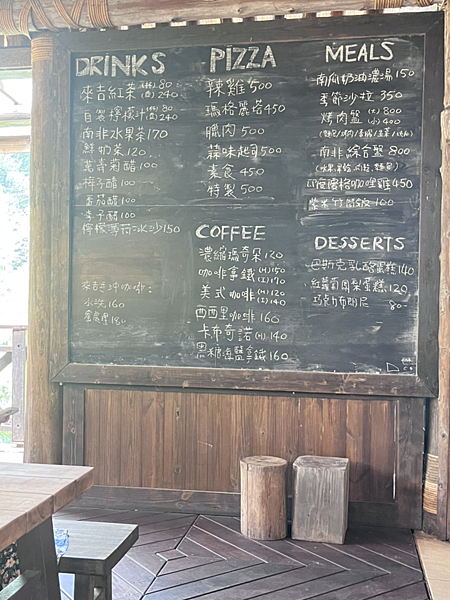 DRINKS
來吉紅茶 (杯) 80
(壺) 240
自製檸檬汁 (杯) 80
(壺) 240
南非水果茶 170
鮮奶茶 120
萬壽菊醋 100
梅子醋 100
番茄醋 100
李子醋 100
檸檬薄荷冰沙 150
來吉手沖咖啡:
水洗 160
蜜處理 180
PIZZA
辣雞 500
瑪格麗塔 450
臘肉 500
蒜味起司 500
素食 450
特製 500
COFFEE
濃縮瑪奇朵 120
咖啡拿鐵 (H) 150
(I) 170
美式咖啡 (H) 120
(I) 140
西西里咖啡 160
卡布奇諾 (H) 140
黑糖海鹽拿鐵 160
MEALS
南瓜奶油濃湯 150
季節沙拉 350
烤肉盤 (大) 800
(小) 400
南非綜合盤 800
印度優格咖哩雞 450
紫米竹筒飯 100
DESSERTS
巴斯克乳酪蛋糕 140
紅蘿蔔鳳梨蛋糕 120
巧克力布朗尼 80